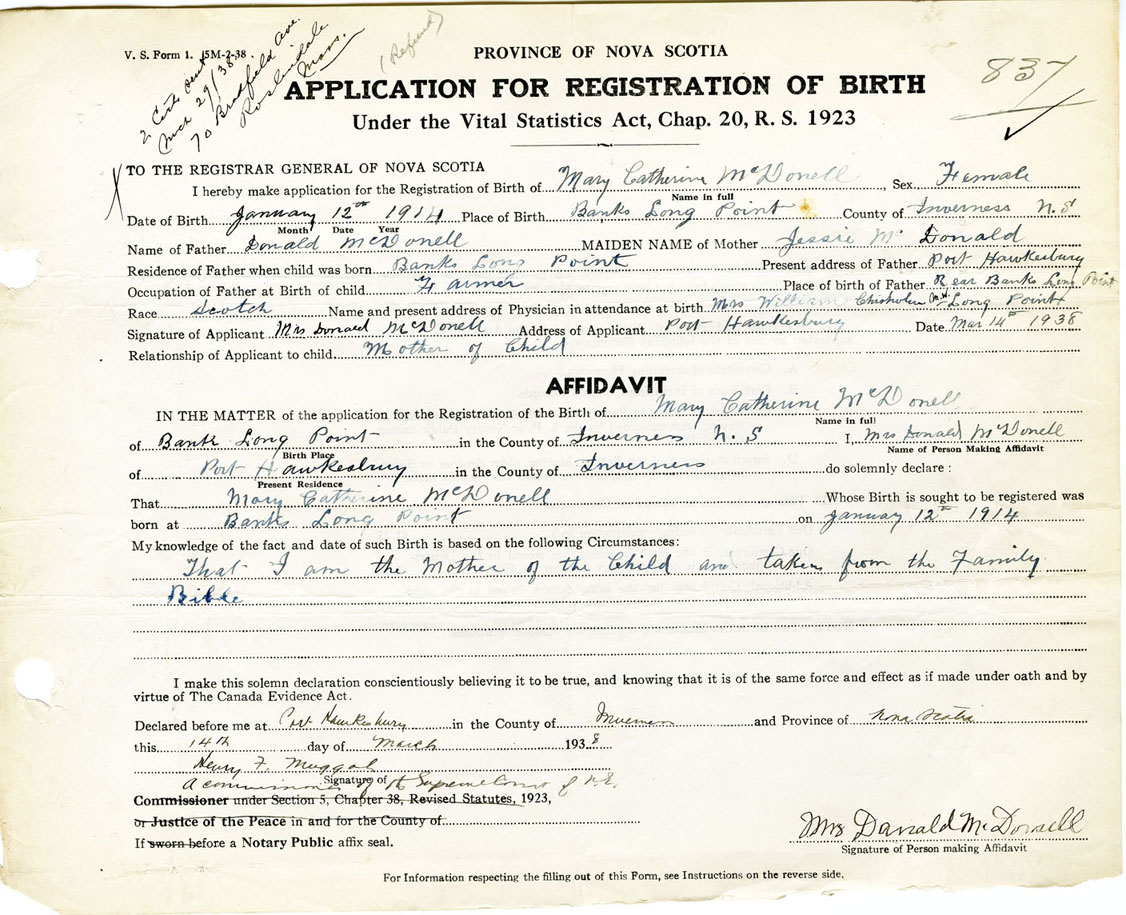 V. S. Form 1. 15M-2-38.
2 Certs sent
March 29/38
70 Bradfield Ave.
Roslindale
Mass.
(Refund)
837
PROVINCE OF NOVA SCOTIA
APPLICATION FOR REGISTRATION OF BIRTH
Under the Vital Statistics Act, Chap. 20, R. S. 1923
TO THE REGISTRAR GENERAL OF NOVA SCOTIA
I hereby make application for the Registration of Birth of Mary Catherine McDonell Sex Female
Name in full
Date of Birth January 12th 1914 Place of Birth Banks Long Point County of Inverness N. S
Month Date Year
Name of Father Donald McDonell MAIDEN NAME of Mother Jessie Mc Donald
Residence of Father when child was born Banks Long Point Present address of Father Port Hawkesbury
Occupation of Father at Birth of child Farmer Place of birth of Father Rear Banks Long Point
Race Scotch Name and present address of Physician in attendance at birth Mrs William Chisholm Long Point
Signature of Applicant Mrs Donald McDonell Address of Applicant Port Hawkesbury Date Mar 14th 1938
Relationship of Applicant to child Mother of Child
AFFIDAVIT
IN THE MATTER of the application for the Registration of the Birth of Mary Catherine McDonell
Name in full
of Banks Long Point in the County of Inverness N. S I, Mrs Donald McDonell
Birth Place Name of Person Making Affidavit
of Port Hawkesbury in the County of Inverness do solemnly declare :
Present Residence
That Mary Catherine McDonell Whose Birth is sought to be registered was
born at Banks Long Point on January 12th 1914
My knowledge of the fact and date of such Birth is based on the following Circumstances:
That I am the Mother of the Child and taken from the Family
Bible
I make this solemn declaration conscientiously believing it to be true, and knowing that it is of the same force and effect as if made under oath and by
virtue of The Canada Evidence Act.
Declared before me at Port Hawkesbury in the County of Inverness and Province of Nova Scotia
this 14th day of March 1938
Henry F. Muggah
Signature of
A commissioner of the Supreme Court of N.S.
Commissioner under Section 5, Chapter 38, Revised Statutes, 1923,
or Justice of the Peace in and for the County of
If sworn before a Notary Public affix seal.
Mrs Donald McDonell
Signature of Person making Affidavit
For Information respecting the filling out of this Form, see Instructions on the reverse side.